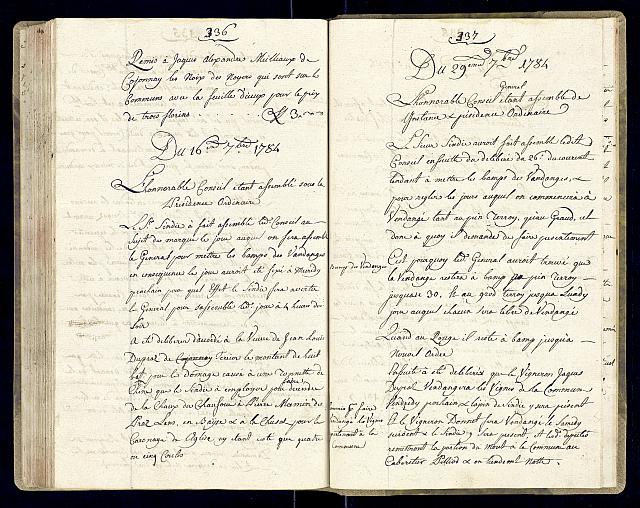 336
Remis à Jaques Alexandre Milliaux de
Cossonay les Noix des Noyers qui sont sur le
Communs avec la feuille d'iceux pour le prix
de trois florins. 3
Du 16 7bre 1784
L'honnorable Conseil etant assemblé sous la
Présidence Ordinaire
Le Sr Sindic à fait assemblé led. Conseil au
Sujet des marque le jour auquel on fera assemblé
le General pour mettre les bamps des Vandanges
en consequence le jour auroit été fixé à Mardy
prochain pour quel Effet le Sindic fera avertir
le General pour s'assembler led. jour à 4 heure du
Soir
A été délibéré d'accorder à la Veuve de Jean Louis
Dupraz de Terrier le montant de huit
par le domage cause à une
que le Sindic à employer pour
de la Chaux du Chaufour à Pierre
les en & à la pour le
Caronage de l'Eglise, ny etant resté que quatre
ou cinq
337
Du 29eme 7bre 1784
L'honnorable Conseil General etant assemblé de
& présidence Ordinaire
Le Sieur Sindic auroit fait assemblé ledit
Conseil ensuitte du délibéré du 26e du courant
tendant à mettre les bamps des Vandanges, &
pour regler les jours auquel on commencera à
Vendangé tant au pin Terroy, qu'au Grand, et
donc à quoy il demande de faire presentement
Bamps des Vandanges
C'est pourquoy led. General auroit trouvé que
la Vendange restera à bamp pin Terroy
jusques 30. Et au grand Terroy jusqua Lundy
jour auquel chacun sera libre de Vendangé
Quand au Rouge il reste à bamp jusqu'à
Nouvel Ordre
Ensuite à été délibéré que le Vigneron Jaques
Dupraz Vendangera les Vignes de la Commune
Vendredy prochain, & le Sindic y sera présent
faire
Vendange les Vignes
appartenant à la
Commune
Et le Vigneron Donnet fera Vendange le Samedy
suivant & le Sindic y sera présent, et
remettront la portion du mout à la Commun au
Cabaretier & en tiendront Notte.